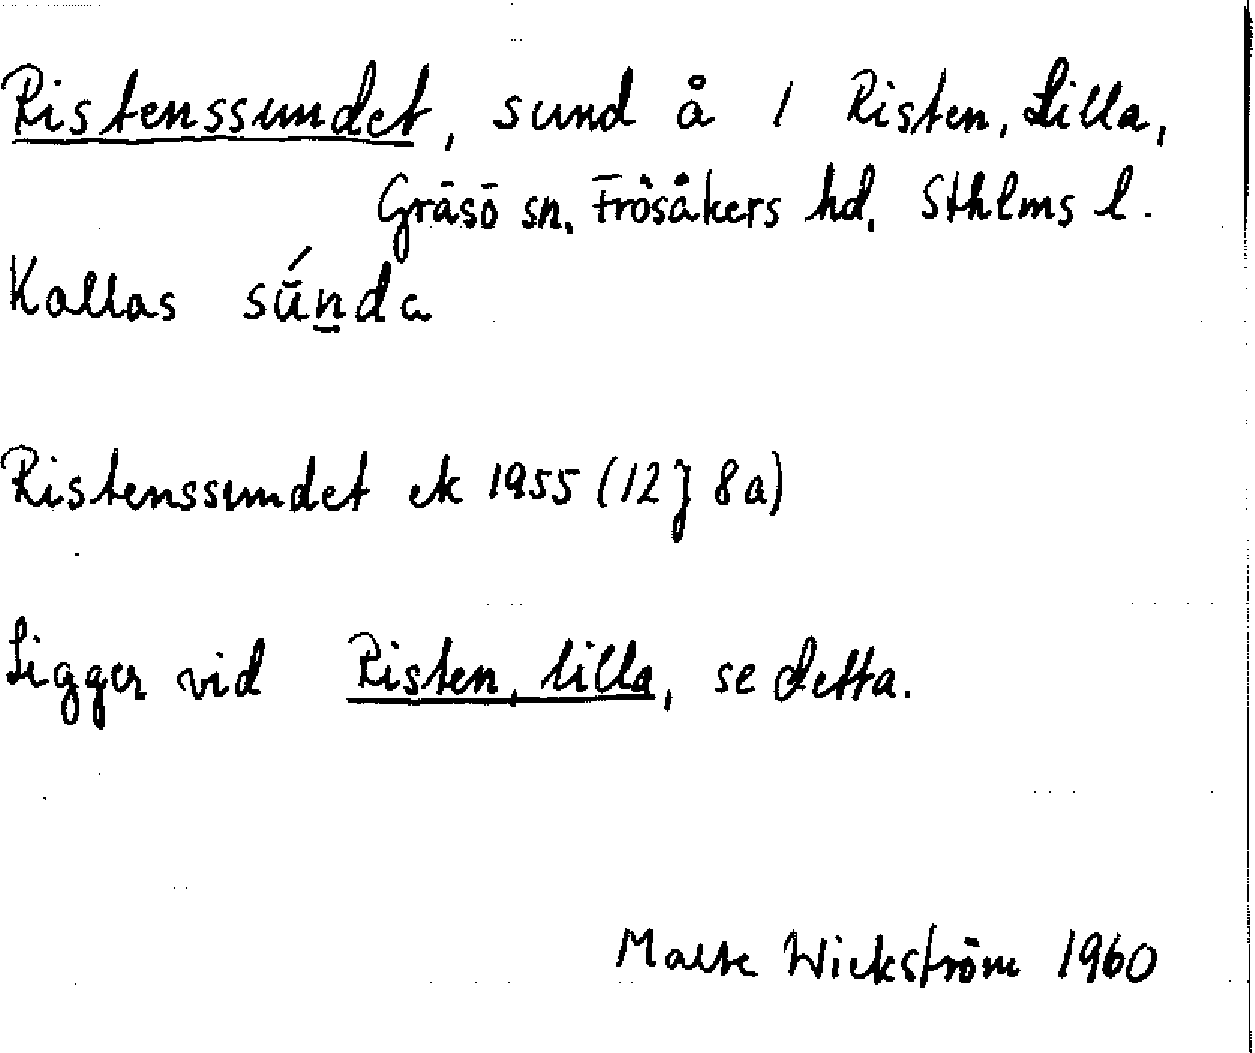 Ristenssundet, sund å 1 Risten, Lilla,
Gräsö sn. Frösåkers hd. Sthlms l.
Kallas sú̄n̲da
Ristenssundet ek 1955 (12 J 8a)
Ligger vid Risten, lilla, se detta.
Malte Wickström 1960